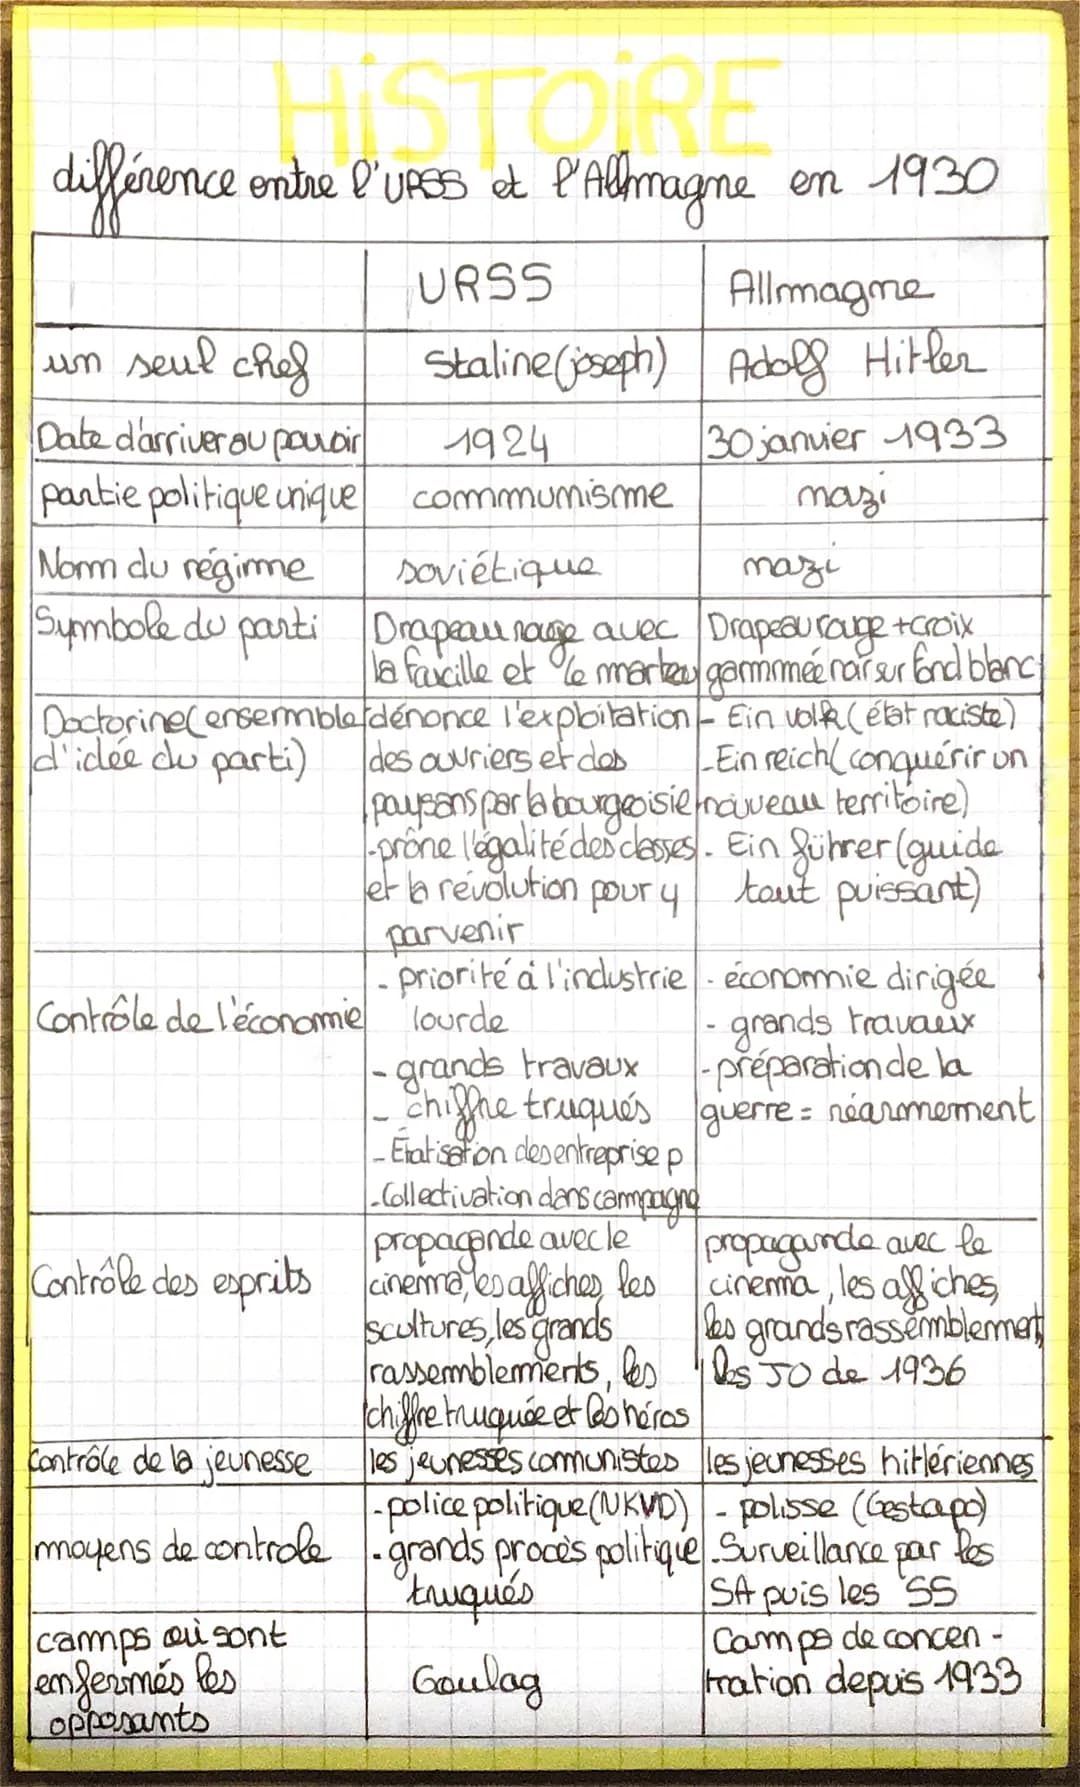 HiSTOiRE
différence entre l'URSS et l'Allmagne en 1930
URSS
Allmagne
un seul chef
Staline (joseph)
Adolf Hitler
Date d'arriver au pouvoir
1924
30 janvier 1933
partie politique unique
communisme
nazi
Nom du régime
soviétique
nazi
Symbole du parti
Drapeau rouge avec
la faucille et le marteau
Drapeau rouge + croix
gammée noir sur fond blanc
Doctorine (ensemble
d'idée du parti)
dénonce l'exploitation
des ouvriers et des
paysans par la bourgeoisie
- prône l'égalité des classes
et la révolution pour y
parvenir
- Ein volk (état raciste)
- Ein reich (conquérir un
nouveau territoire)
- Ein führer (guide
tout puissant)
Contrôle de l'économie
- priorité à l'industrie
lourde
- grands travaux
- chiffre truqués
- Étatisation des entreprise p
- Collectivation dans campagne
- économie dirigée
- grands travaux
- préparation de la
guerre = réarmement
Contrôle des esprits
propagande avec le
cinéma, les affiches, les
scultures, les grands
rassemblements, les
chiffre truquée et les héros
propagande avec le
cinema, les affiches,
les grands rassemblement,
les JO de 1936
Contrôle de la jeunesse
les jeunesses communistes
les jeunesses hitlériennes
moyens de controle
- police politique (NKVD)
- grands procès politique
truqués
- polisse (Gestapo)
- Surveillance par les
SA puis les SS
camps où sont
enfermés les
opposants
Goulag
Camps de concen -
tration depuis 1933